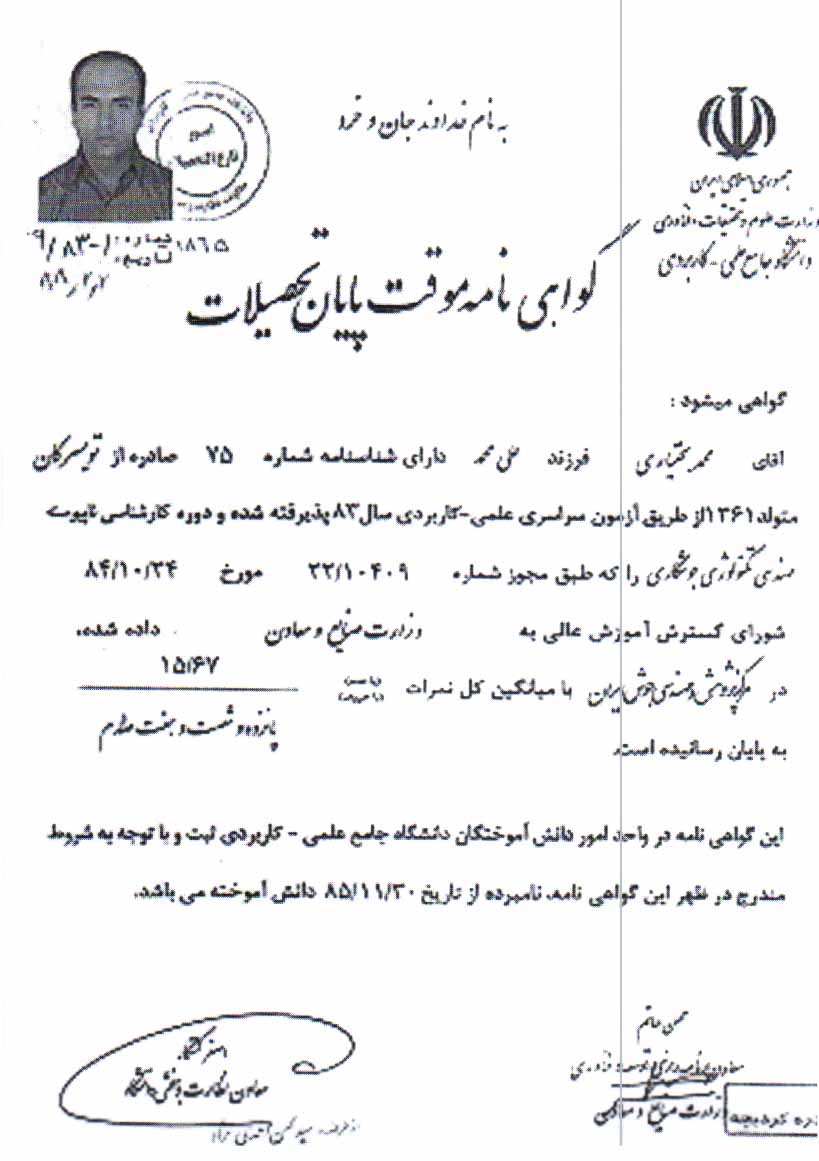 به نام خداوند جان و خرد
جمهوری اسلامی ایران
وزارت علوم و تحقیقات و فناوری
دانشگاه جامع علمی - کاربردی
شماره:
تاریخ:
۸۸/۲/۲
گواهی نامه موقت پایان تحصیلات
گواهی میشود :
آقای محمد بختیاری فرزند علی محمد دارای شناسنامه شماره ۷۵ صادره از تویسرکان
متولد ۱۳۶۱ از طریق آزمون سراسری علمی-کاربردی سال ۸۳ پذیرفته شده و دوره کارشناسی ناپیوسته
مهندسی تکنولوژی جوشکاری را که طبق مجوز شماره ۲۲/۱۰۴۰۹ مورخ ۸۴/۱۰/۲۴
شورای گسترش آموزش عالی به وزارت صنایع و معادن داده شده،
در مرکز پژوهش و مهندسی جوش ایران با میانگین کل نمرات ۱۵/۶۷
پانزده و شصت و هفت صدم
به پایان رسانیده است.
این گواهی نامه در واحد امور دانش آموختگان دانشگاه جامع علمی - کاربردی ثبت و با توجه به شروط
مندرج در ظهر این گواهی نامه، نامبرده از تاریخ ۸۵/۱۱/۳۰ دانش آموخته می باشد.
محسن حاتم
معاون برنامه ریزی توسعه و فناوری
وزارت صنایع و معادن
اصغر کشتکار
معاون نظارت و سنجش دانشگاه